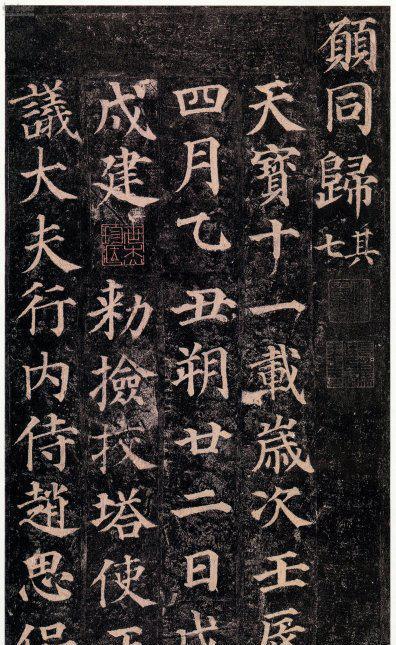 願同歸其七
天寶十一載歲次壬辰
四月乙丑朔廿二日戊
戌建勅撿挍塔使正
議大夫行内侍趙思侃